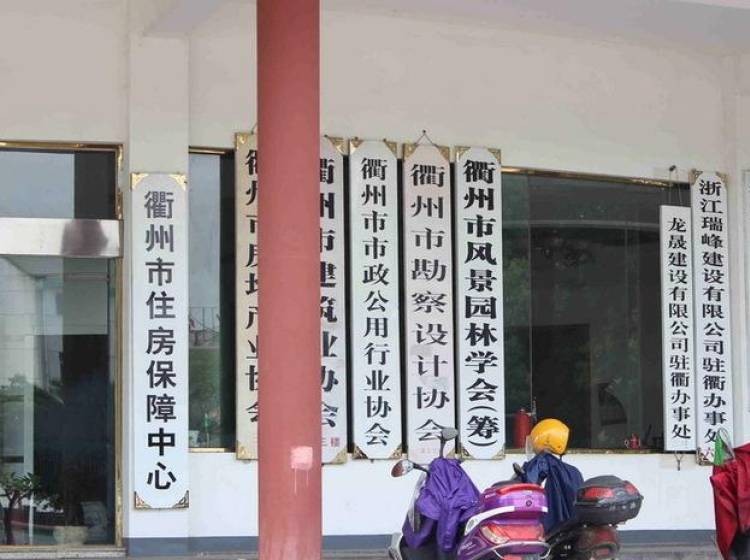 衢州市住房保障中心
衢州市房地产业协会
衢州市建筑业协会
三楼
衢州市市政公用行业协会
衢州市勘察设计协会
衢州市风景园林学会(筹)
龙晟建设有限公司驻衢办事处
浙江瑞峰建设有限公司驻衢办事处